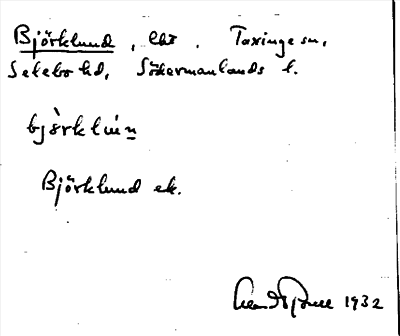 Björklund, lht. Taxinge sn,
Selebo hd, Södermanlands l.
bjö̀rklún
Björklund ek.
1932